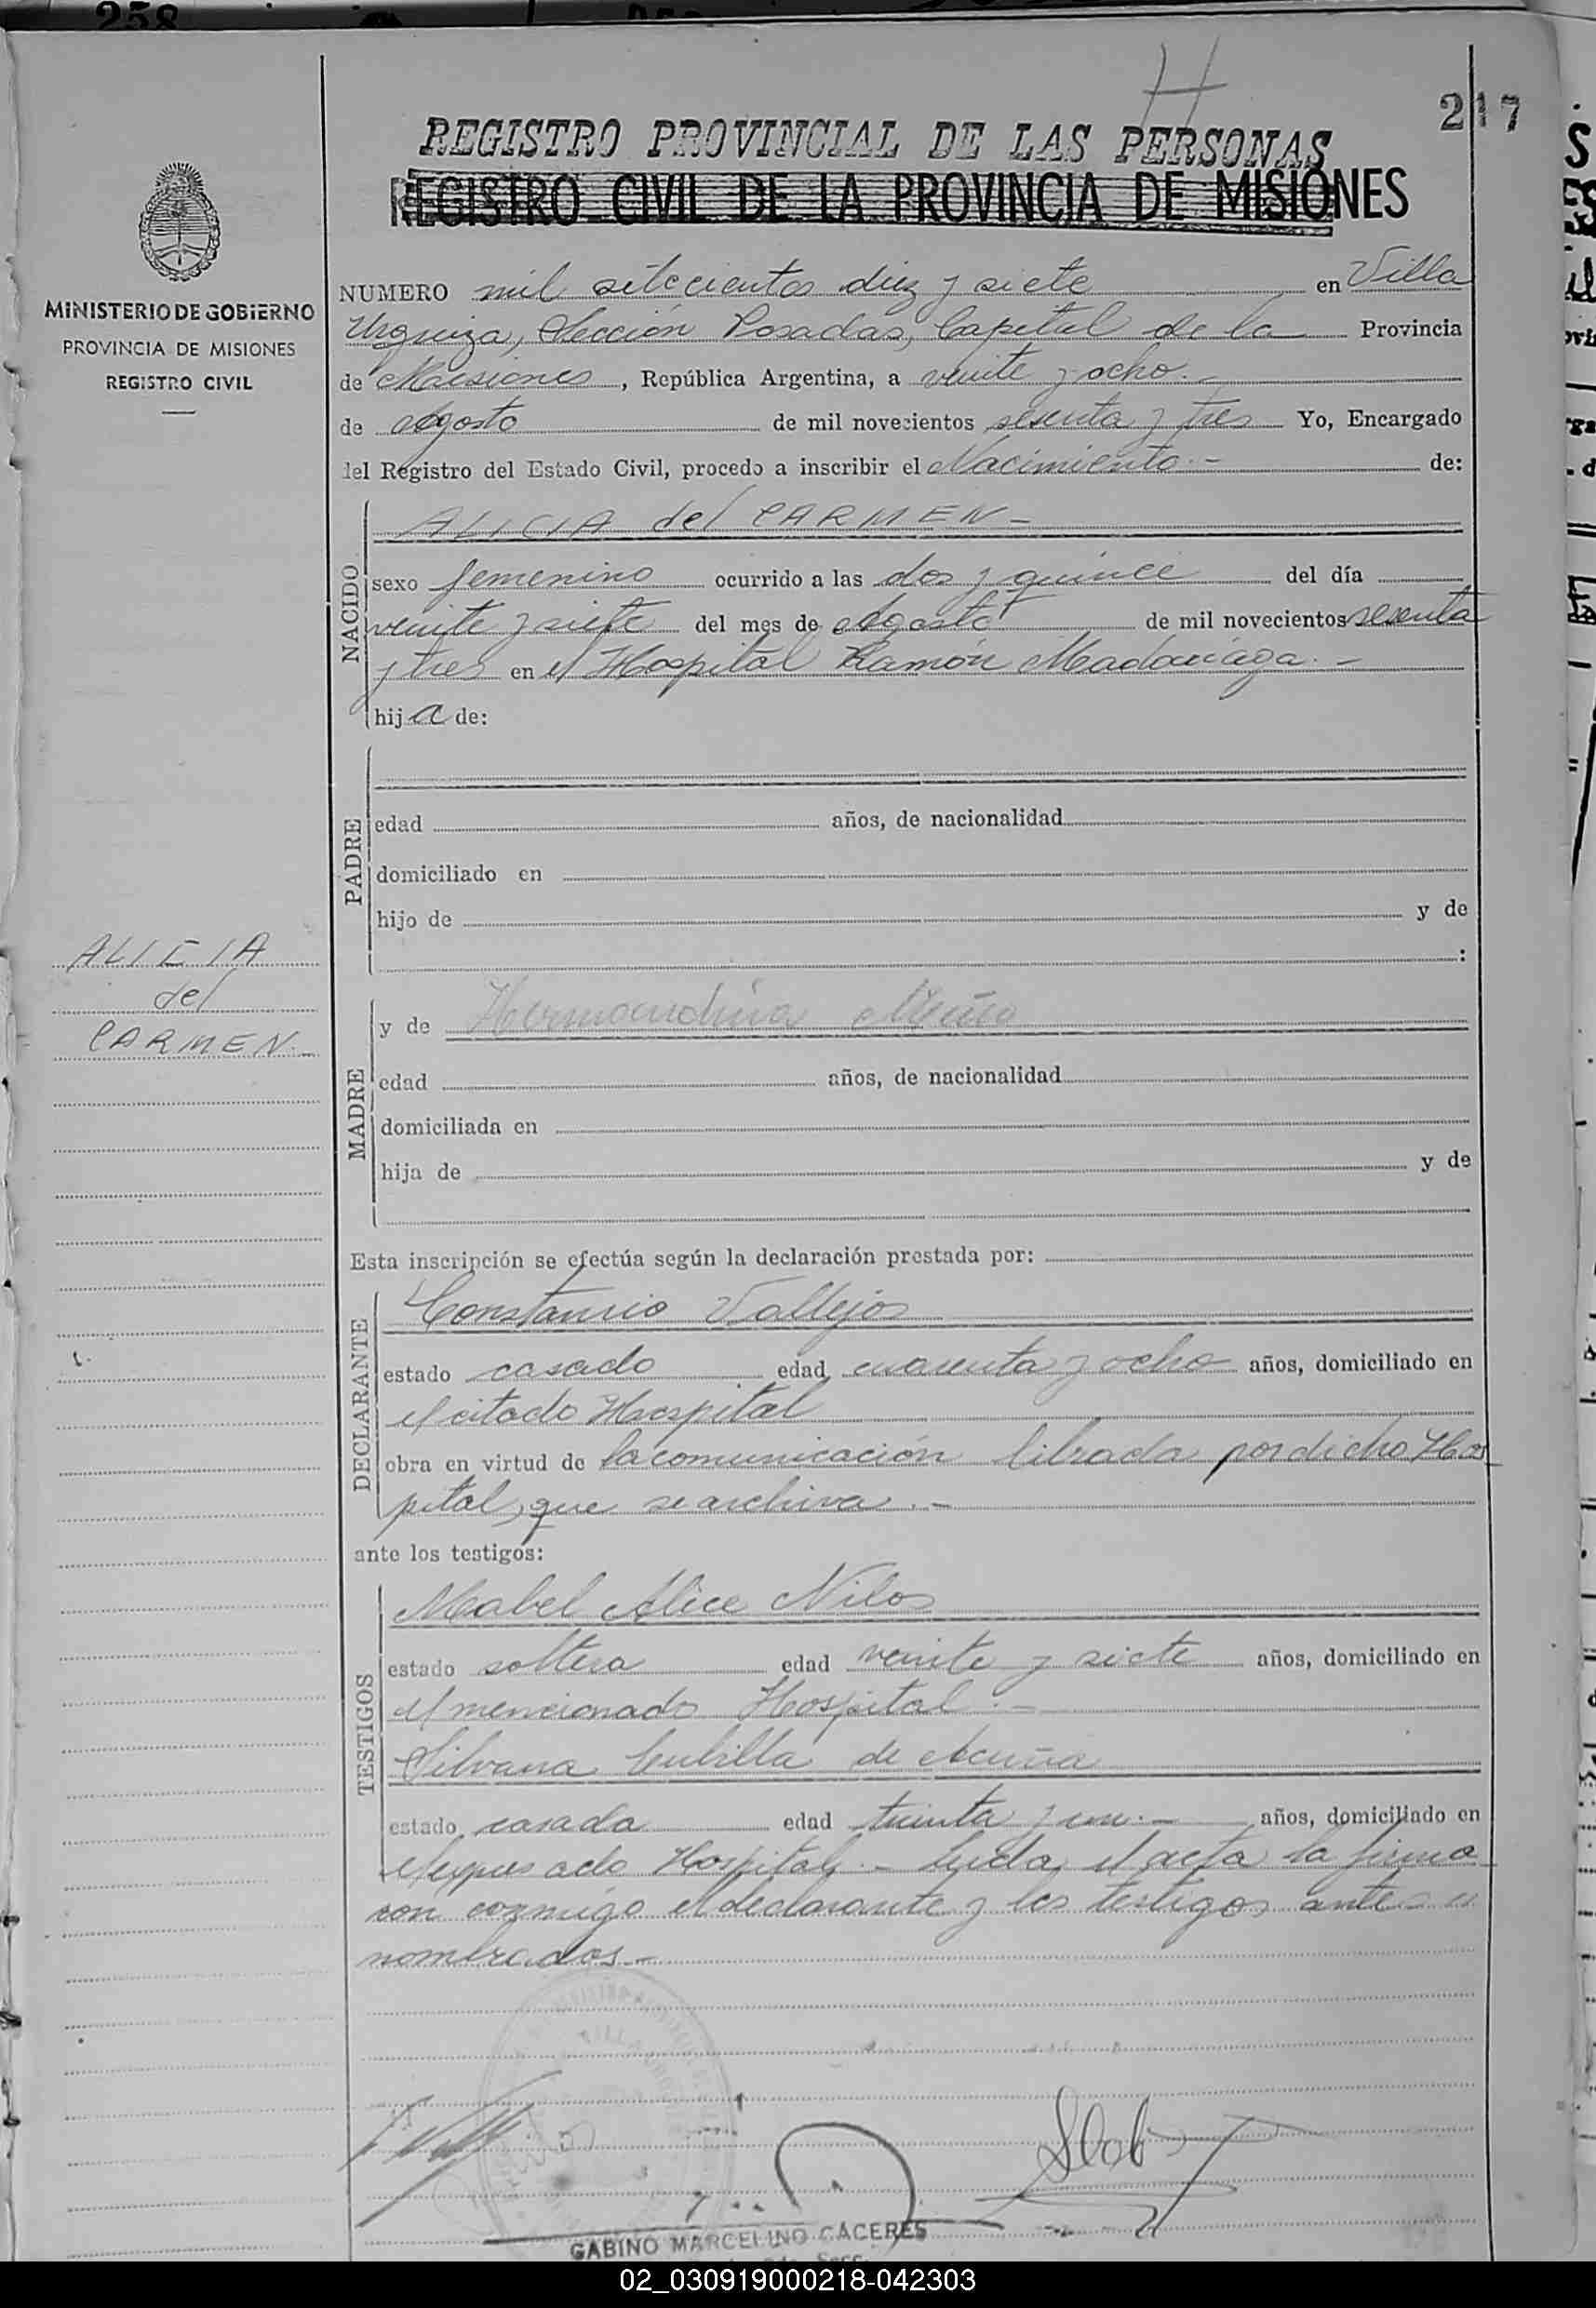 258
217
REGISTRO PROVINCIAL DE LAS PERSONAS
REGISTRO CIVIL DE LA PROVINCIA DE MISIONES
MINISTERIO DE GOBIERNO
PROVINCIA DE MISIONES
REGISTRO CIVIL
NUMERO mil setecientos diez y siete en Villa
Urquiza, Sección Posadas, Capital de la Provincia
de Misiones, República Argentina, a veinte y ocho.-
de Agosto de mil novecientos sesenta y tres Yo, Encargado
del Registro del Estado Civil, procedo a inscribir el Nacimiento.- de:
NACIDO
ALICIA del CARMEN-
sexo femenino ocurrido a las dos y quince del día
veinte y siete del mes de Agosto de mil novecientos sesenta
y tres en el Hospital Ramón Madariaga.-
hija de:
PADRE
edad años, de nacionalidad
domiciliado en
hijo de y de
:
ALICIA
del
CARMEN.-
MADRE
y de
edad años, de nacionalidad
domiciliada en
hija de y de
Esta inscripción se efectúa según la declaración prestada por:
DECLARANTE
Constancio Vallejos
estado casado edad cuarenta y ocho años, domiciliado en
el citado Hospital
obra en virtud de la comunicación librada por dicho Hos
pital, que se archiva.-
ante los testigos:
TESTIGOS
Mabel Alice Nilos
estado soltera edad veinte y siete años, domiciliado en
el mencionado Hospital.-
Silvana Cubilla de Acuña
estado casada edad treinta y un.- años, domiciliado en
el expresado Hospital.- Leída el acta la firma
ron conmigo el declarante y los testigos antes
nombrados.-
GABINO MARCELINO CACERES
02_030919000218-042303